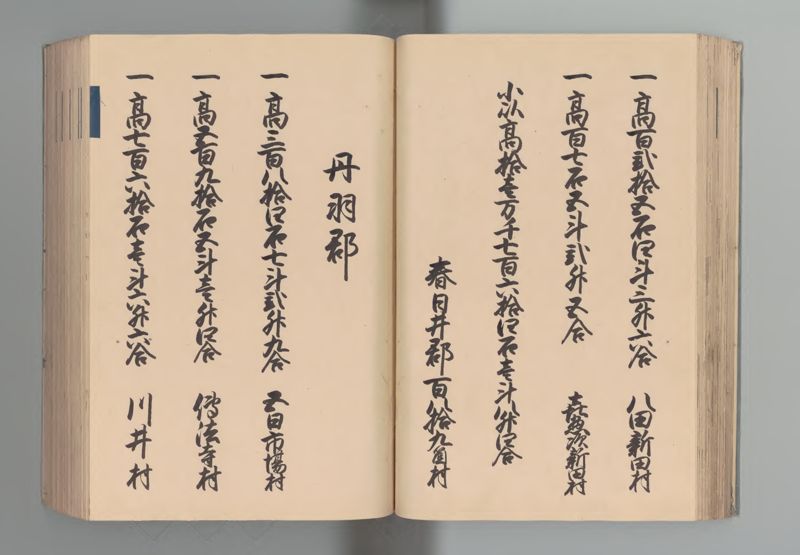 一高百弐拾五石四斗三升六合 八田新田村
一高百七石五斗弐升五合 喜惣次新田村
小以高拾壱万千七百六拾四石壱斗八升四合
春日井郡百八拾九ヶ村
丹羽郡
一高三百八拾四石七斗弐升九合 五日市場村
一高五百九拾石五斗壱升四合 傳法寺村
一高七百六拾石壱斗六升六合 川井村